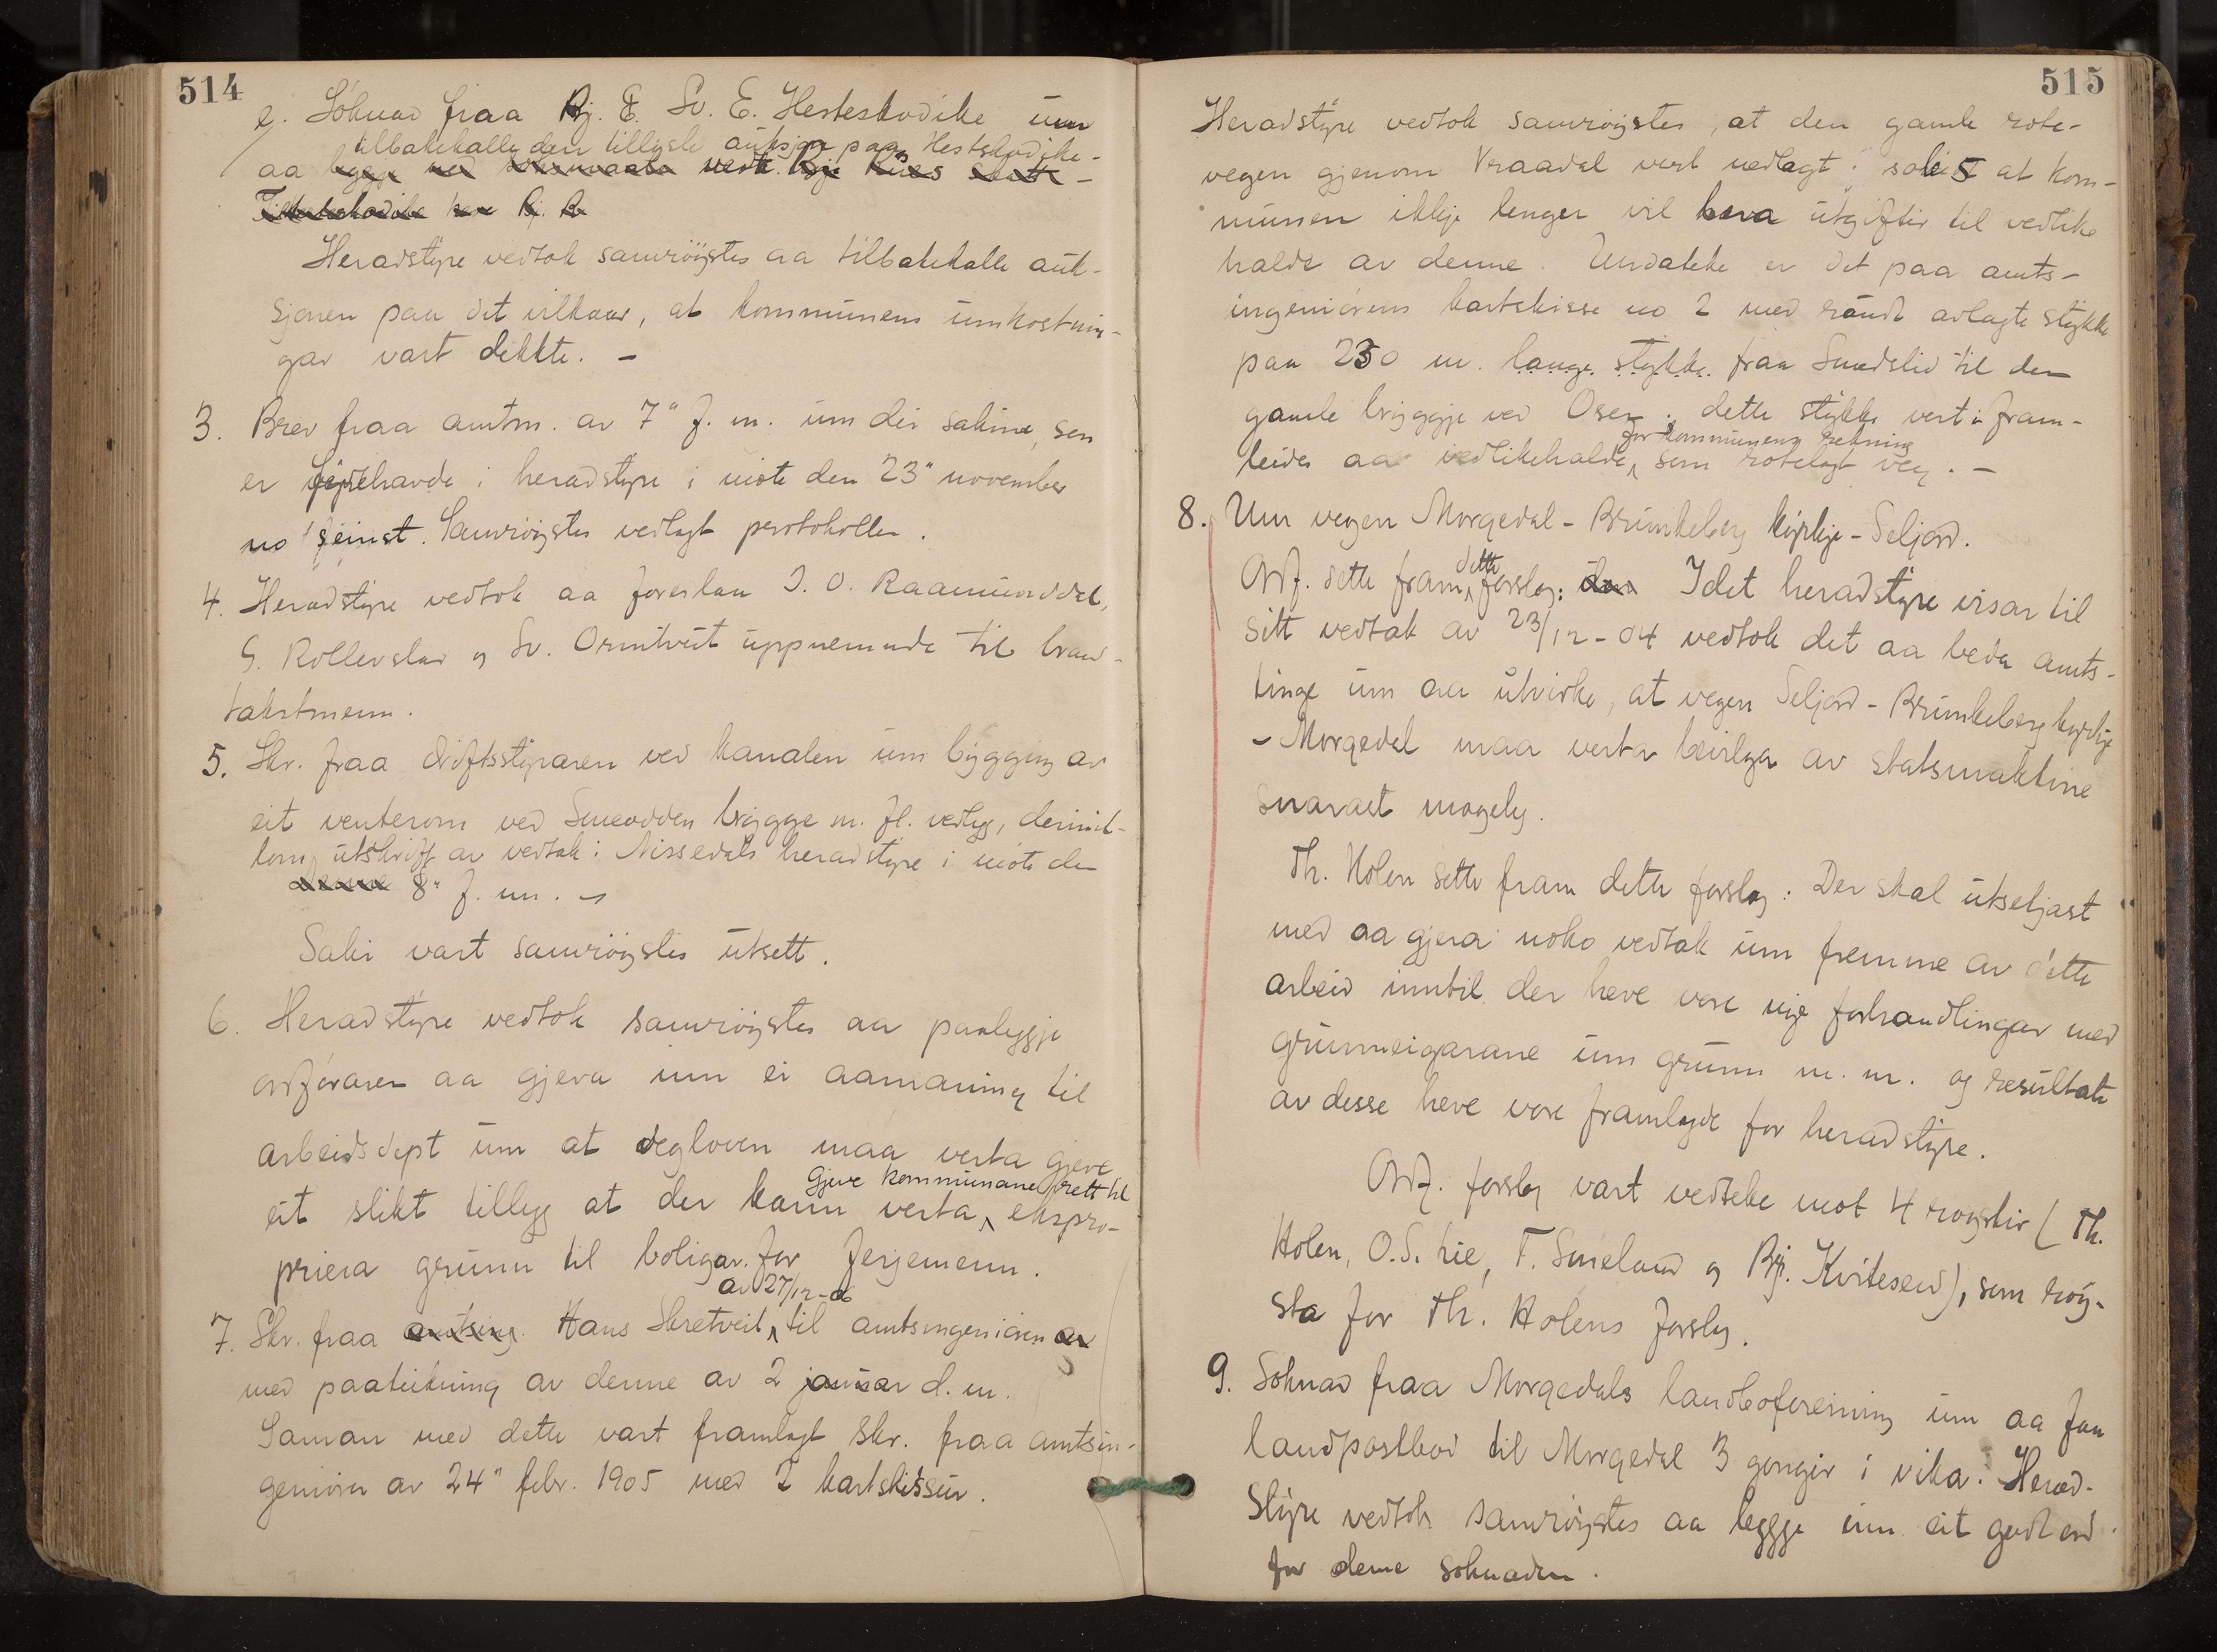 514
e. Søknad fraa Sv. E. Hesteskodike um
tilbakekalle den tillyste auksjon paa Hestskodike-
aa
Heradstyre vedtok samrøystes aa tilbakekalle auk-
sjonen paa det vilkaar, at kommunens umkostnin-
gar vart dekkte. -
3. Brev fraa amtm. av 7" f. m. um dei sakine, som
er fyrehavde i heradstyre i møte den 23" november
no seinst. Samrøystes vedlagt protokollen.
4. Heradstyre vedtok aa foreslaa J. O. Raamunddal,
G. Rollevstad og Sv. Ormtveit uppnemnde til brand-
takstmenn.
5. Skr. fraa driftsstyraren ved kanalen um bygging av
eit venterom ved Smeodden brygge m. fl. vedlegg, derimil-
lom utskrift av vedtak i Nissedals heradstyre i møte den
8" f. m. -
Saki vart samrøystes utsett.
6. Heradstyre vedtok samrøystes aa paaleggje
ordføraren aa gjeva inn ei aamaning til
arbeidsdept um at vegloven maa verta gjeve
eit slikt tillegg at der kann verta gjeve kommunane rett til ekspro-
priera grunn til boligar for ferjemenn.
7. Skr. fraa amtsing. Hans Skretveit av 27/12-06 til amtsingeniøren av
med paateikning av denne av 2 januar d. m.
Saman med dette vart framlagt skr. fraa amtsin-
geniøren av 24" febr. 1905 med 2 kartskissur.
515
Heradstyre vedtok samrøystes, at den gamle rote-
vegen gjenom Vraadal vert nedlagt; soleis at kom-
munen ikkje lenger vil hava utgifter til vedlike
halde av denne. Undateke er det paa amts-
ingeniørens kartskisse no 2 med raudt avlagte stykke
paa 230 m. lange stykke fraa Smedslid til den
gamle bryggje ved Osen; dette stykke vert i fram-
leides aa vedlikehalde for kommunens rekning som rotelagt veg. -
8. Um vegen Morgedal - Brunkeberg kyrkje - Seljord.
Ordf. sette fram dette forslag: den Idet heradstyre visar til
sitt vedtak av 23/12-04 vedtok det aa beda amts-
tinge um aa utvirke, at vegen Seljord - Brunkeberg kyrkje
- Morgedal maa verta bevilga av statsmaktine
snarast mogeleg.
Th. Holen sette fram dette forslag: Der skal utsetjast
med aa gjera noko vedtak um fremme av dette
arbeid inntil der heve vore nye forhandlingar med
grunneigarane um grunn m. m. og resultate
av desse heve vore framlagde for heradstyre.
Ordf. forslag vart vedteke mot 4 røyster (Th.
Holen, O. S. Lie, F. Smeland og Bj. Kviteseid), som røy-
sta for Th. Holens forslag.
9. Søknad fraa Morgedals landboforeining um aa faa
landpostbod til Morgedal 3 gongir i vika. Herad-
styre vedtok samrøystes aa leggje inn eit godt ord
for denne søknaden.